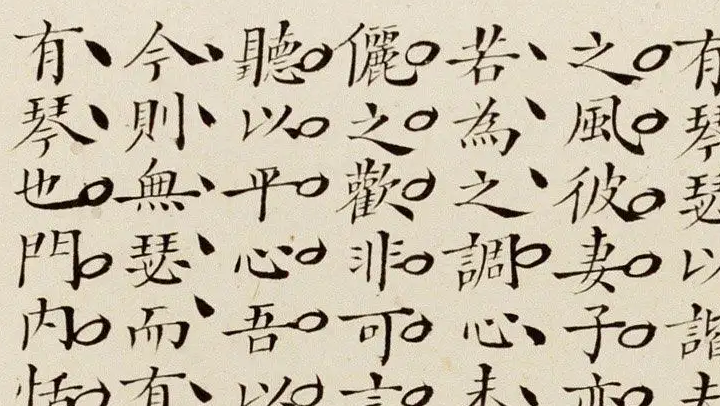 有琴瑟以諧
之風彼妻子亦
若為之調心未
儷之歡非可言
聽以平心吾以
今則無瑟而有
有琴也門内恬